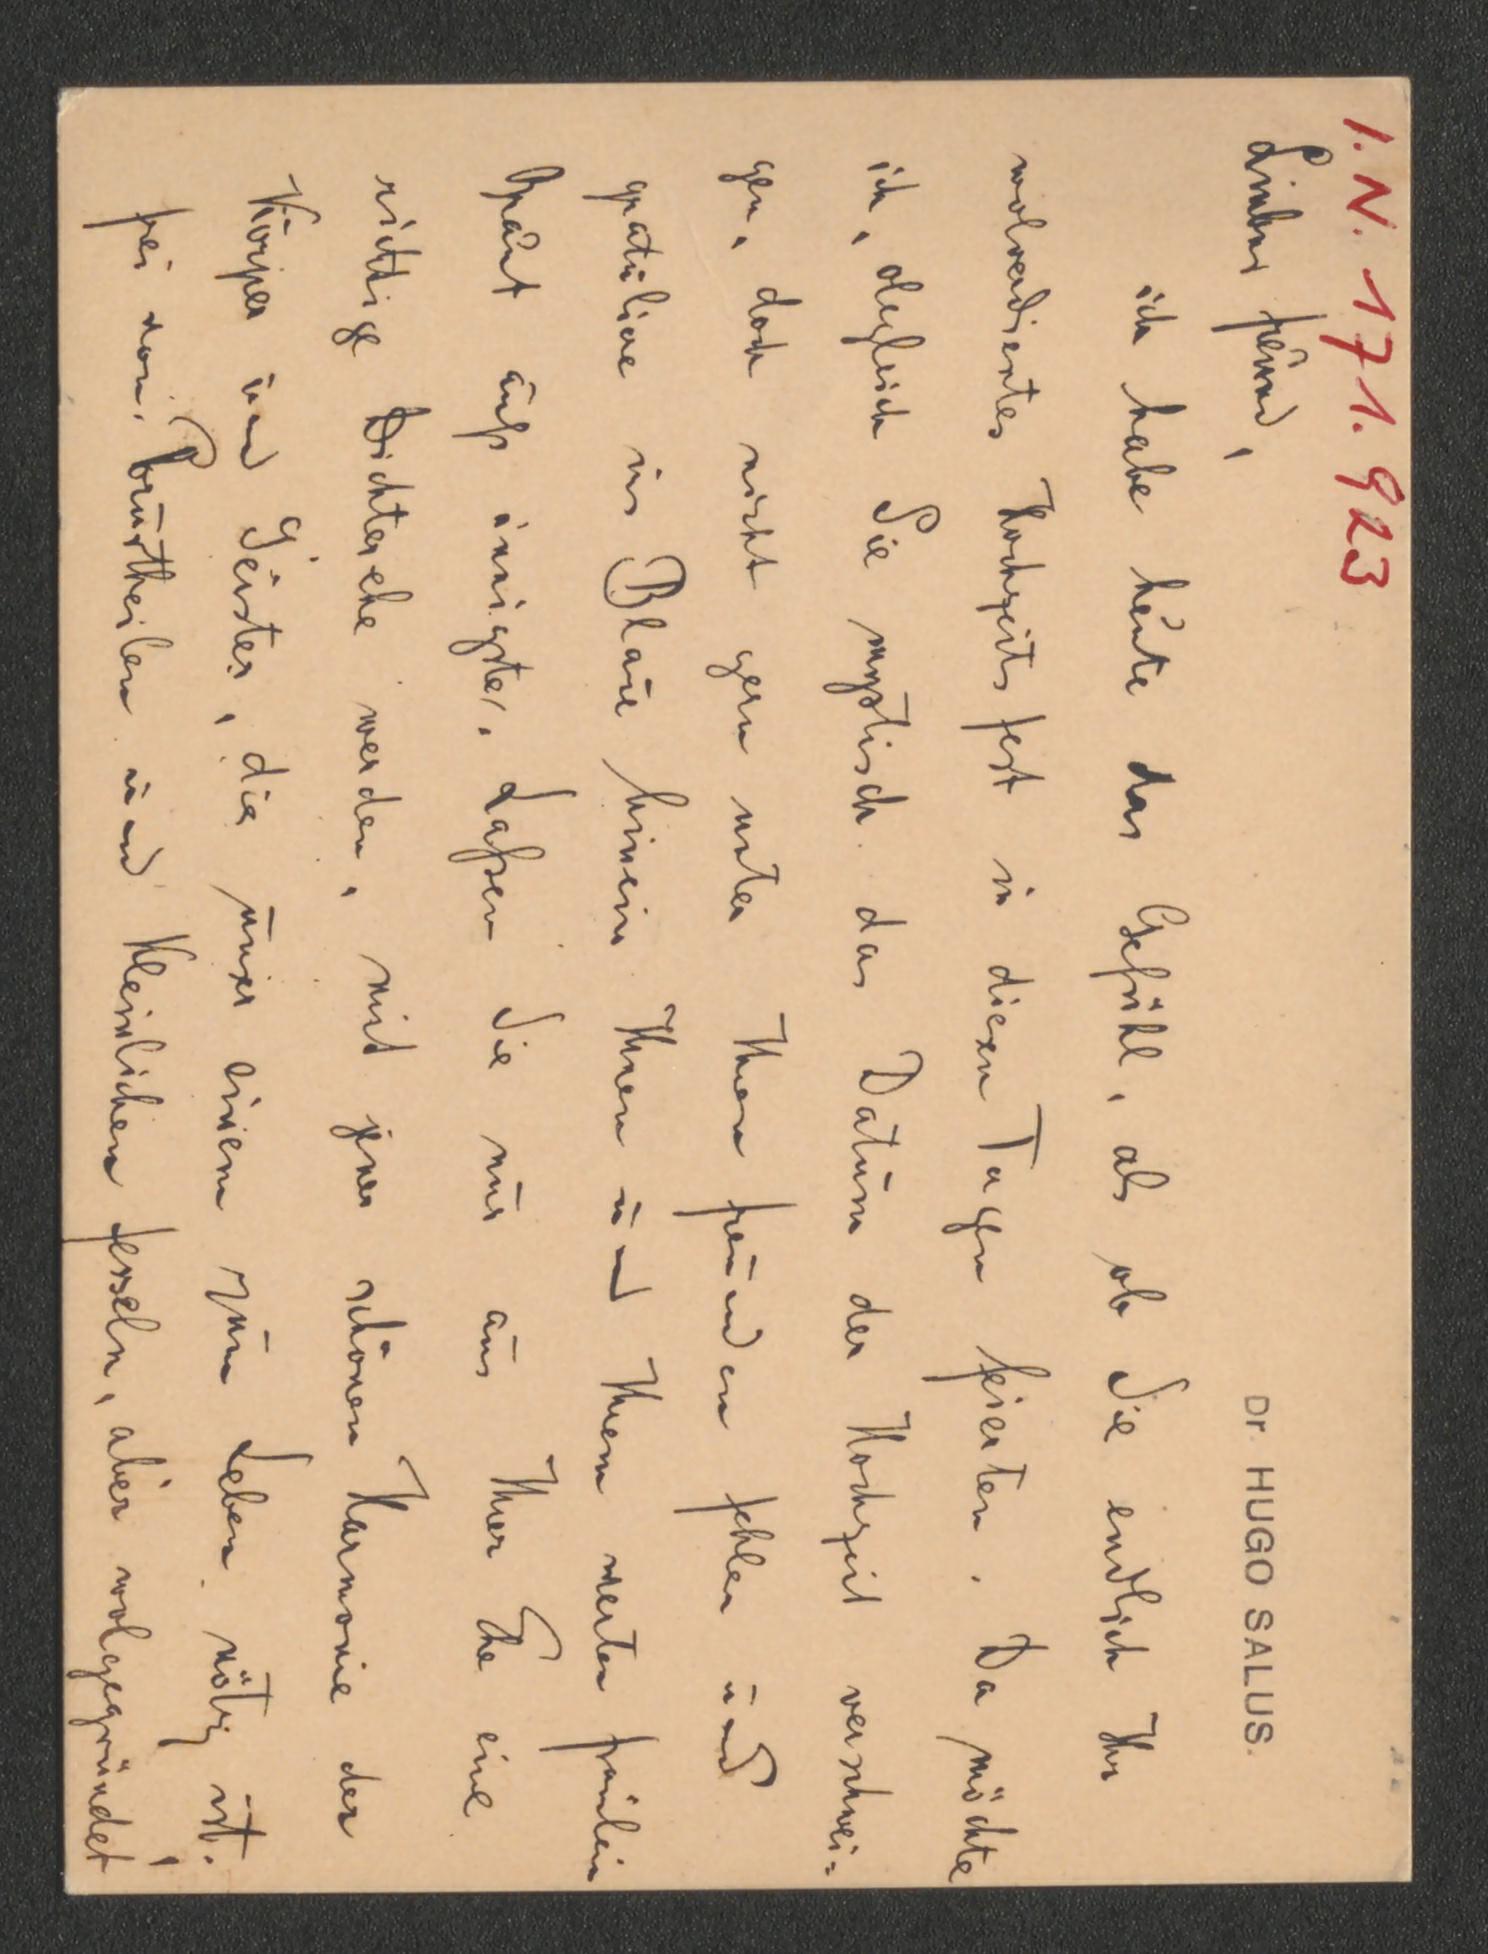 I. N. 171.923
Dr. HUGO SALUS.
Lieber Freund,
ich habe heute das Gefühl, als ob Sie endlich Ihr
wolverdientes Hochzeitsfest in diesen Tagen feierten. Da möchte
ich, obgleich Sie mystisch das Datum der Hochzeit verschwei-
gen, doch nicht gern unter Ihren Freunden fehlen und
gratulire ins Blaue hinein Ihnen und Ihrem werten Fräulein
Braut aufs innigste. Laßen Sie nur aus Ihrer Ehe eine
richtige Dichterehe werden, mit jener schönen Harmonie der
Körper und Geister, die unser einem zum Leben nötig ist.
frei von Vorurtheilen und kleinlichen Fesseln, aber wolgegründet,